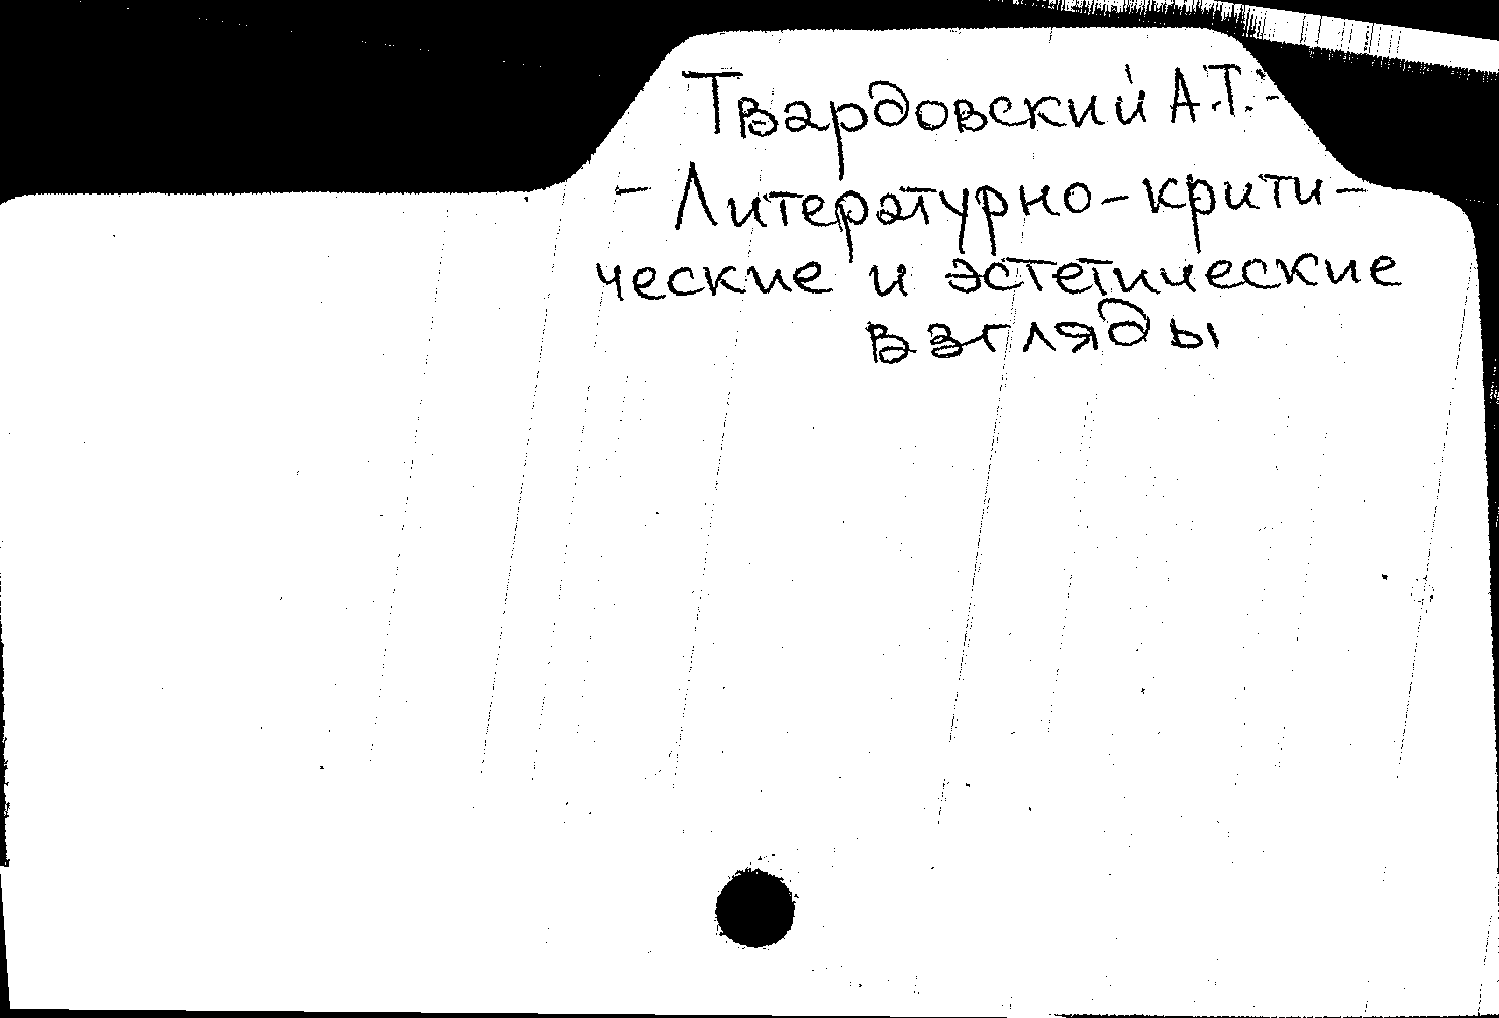 Твардовский А.Т.-
- Литературно-крити-
ческие и эстетические
взгляды